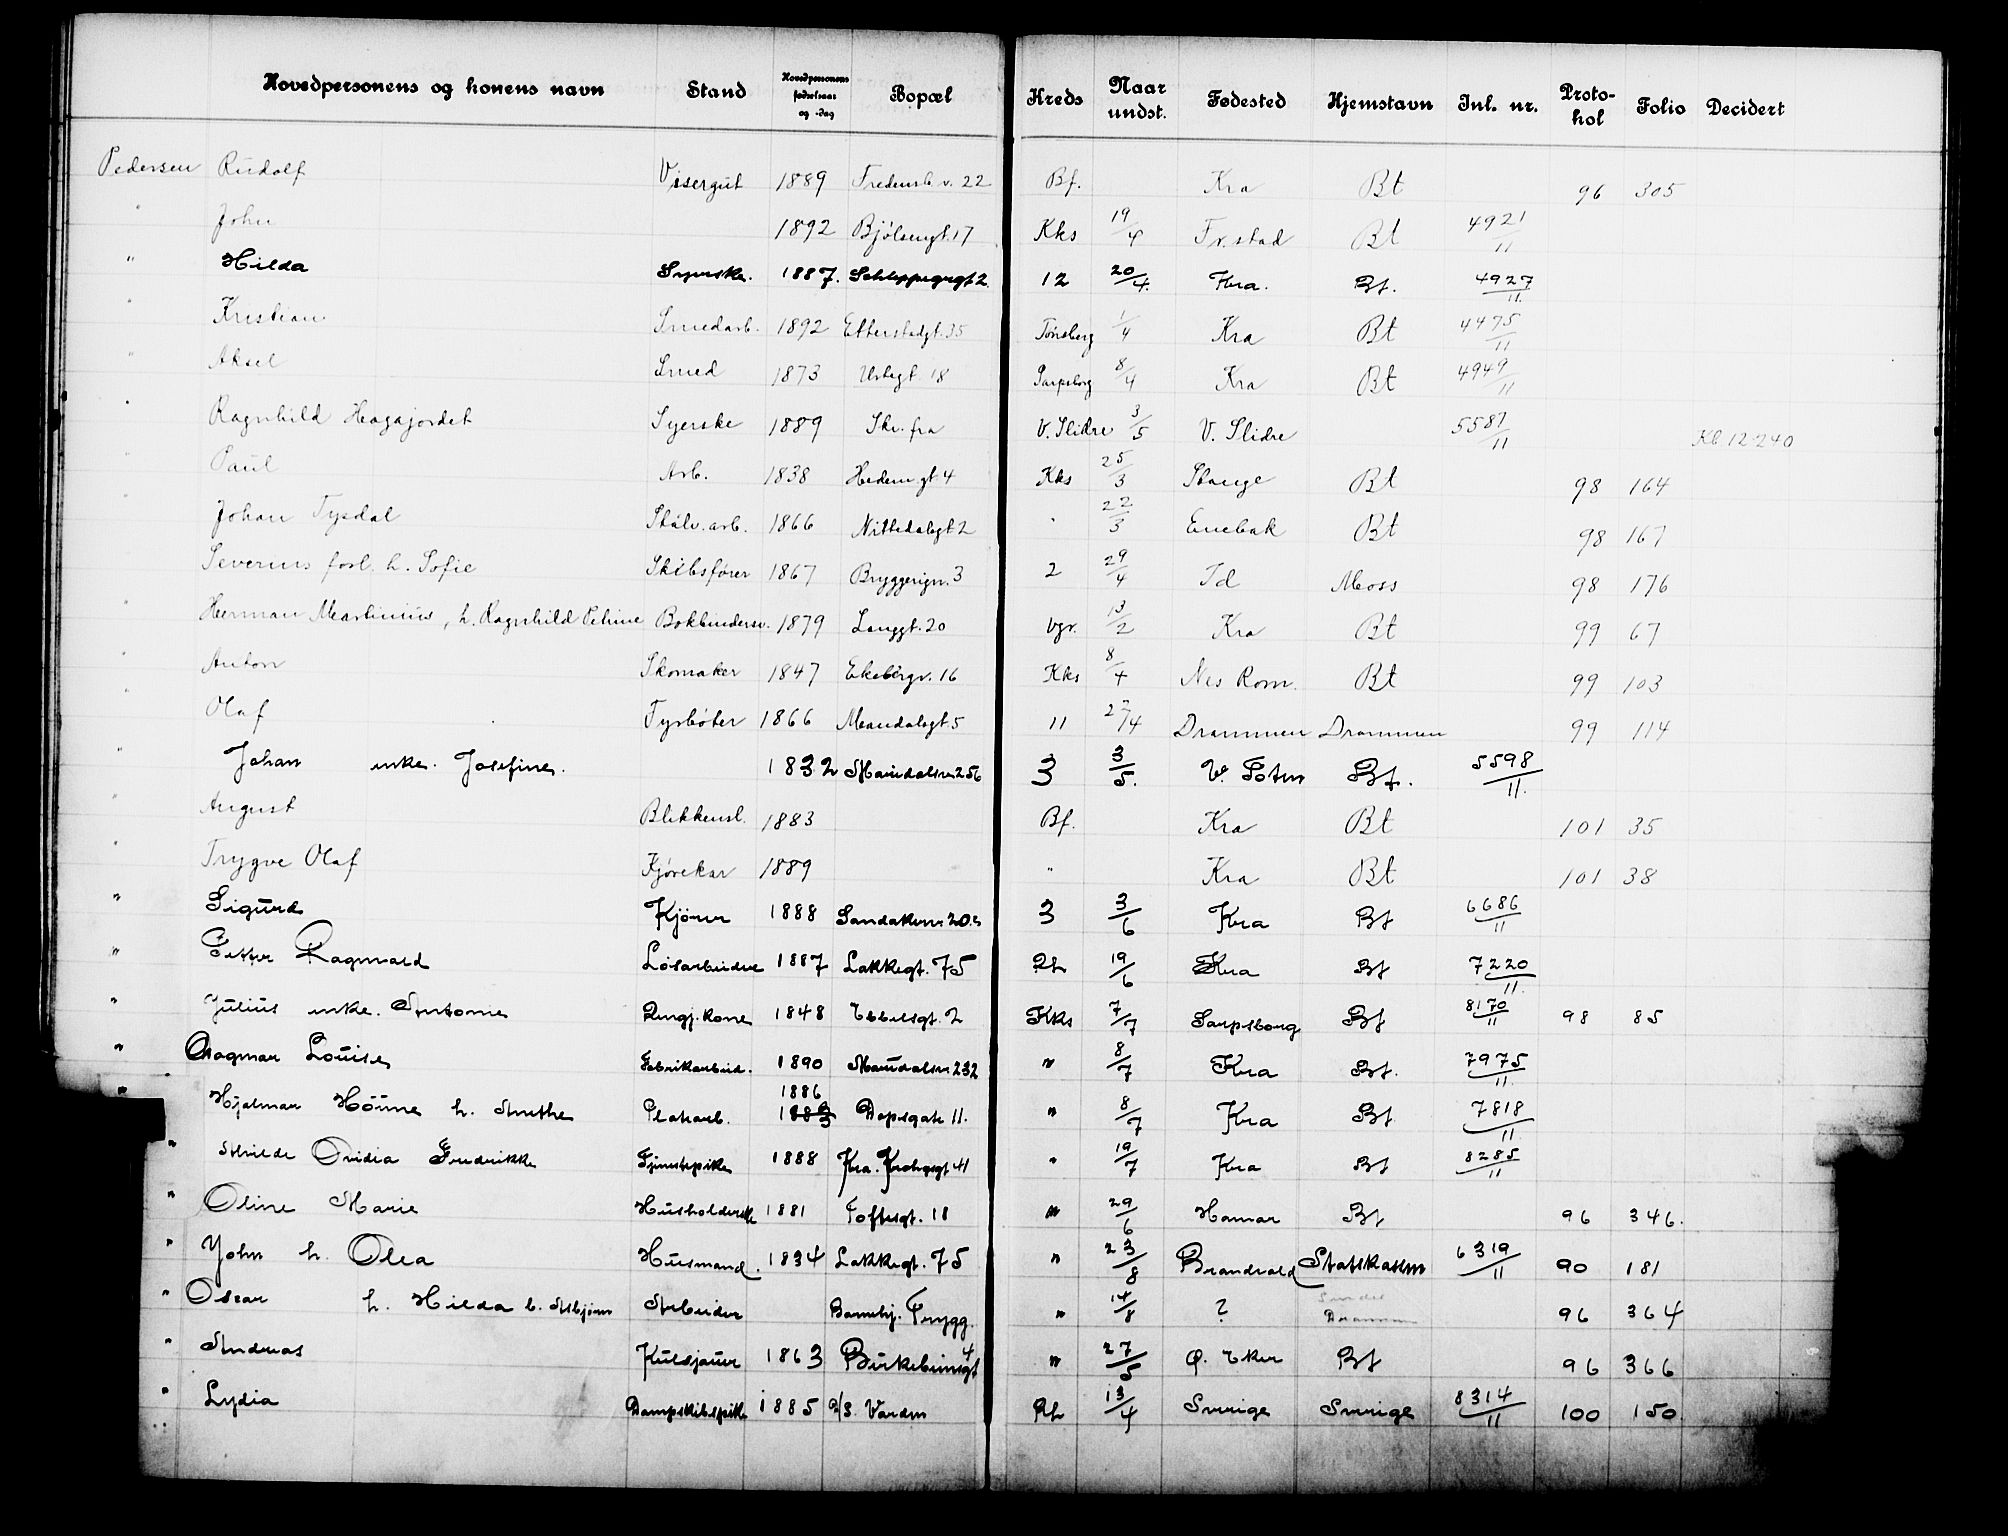 Hovedpersonens og konens navn Stand Hovedpersonens fødselsaar og -dag Bopæl Kreds Naar undst. Fødested Hjemstavn Inl. nr. Proto-kol Folio Decidert
Pedersen Rudolf Visergut 1889 Fredensb.v. 22 Bf. Kra Bt 96 305
" John 1892 Bjølsengt. 17 Kks 19/4 Fr.stad Bt 4921/11
" Hilda Syerske. 1887. Schleppegrgt 2. 12 20/4. Kra. Bt. 4927/11.
" Kristian Smedarb. 1892 Etterstadgt. 35 Tønsberg 1/4 Kra Bt 4475/11
" Aksel Smed 1873 Urtegt. 18 Sarpsborg 8/4 Kra Bt 4949/11
" Ragnhild Hagajordet Syerske 1889 Skr. fra V. Slidre 3/5 V. Slidre 5587/11 Kl 12-240
" Paul Arb. 1838 Hedem.gt 4 Kks 25/3 Stange Bt 98 164
" Johan Tysdal Stålv. arb. 1866 Nittedalsgt 2 " 22/3 Enebak Bt 98 167
" Severius forl. h. Sofie Skibsfører 1867 Bryggerign. 3 2 29/4 Id Moss 98 176
" Herman Martinius, h. Ragnhild Petrine Bokbindersv. 1879 Langgt. 20 Vgr. 13/2 Kra Bt 99 67
" Anton Skomaker 1847 Ekebergv. 16 Kks 8/4 Nes Rom. Bt 99 103
" Olaf Fyrbøter 1866 Mandalsgt. 5 11 27/4 Drammen Drammen 99 114
" Johan enke. Josefine. 1832 Maridalsv. 256 3 3/5. V. Toten Bt. 5598/11.
" August Blikkensl. 1883 Bf. Kra Bt 101 35
" Trygve Olaf Kjørekar 1889 " Kra Bt 101 38
" Sigurd Kjører 1888 Sandakerv. 20. 3 3/6 Kra Bt 6686/11
" Petter Ragnvald Løsarbeider 1887 Lakkegt. 75 Rh 19/6 Kra Bt 7220/11.
" Julius enke. Antonie Rengj. kone 1848 Ebbelsgt. 2 Kks 7/7 Sarpsborg Bt 8170/11 98 85
" Dagmar Louise Fabrikarbeid. 1890 Maridalsv. 232 " 8/7 Kra Bt. 7975/11.
" Hjalmar h. Anethe Platearb. 1886 1883 Dopsgate 11. " 8/7 Kra Bt. 7818/11.
" Alvilde Ovidia Fredrikke Tjenstepike 1888 Kra. Krohgsgt 41 " 19/7 Kra Bt 8285/11
" Oline Marie Husholderske 1881 Toftesgt. 18 " 29/6 Hamar Bt 96 346.
" John h. Olea Husmand. 1834 Lakkegt. 75 " 23/8 Brandvold Statskassen 6319/11 90 181
" Oscar h. Hilda b. Asbjørn Arbeider Barnehj. Trygg. " 14/8 ? Drammen 96 364
" Andreas Kulsjauer 1863 Birkebeinergt 4 " 27/5 Ø. Eker Bt 96 366
" Lydia Dampskibspike 1885 D/S. Varden Rh 13/4 Sverige Sverige 8314/11 100 150.